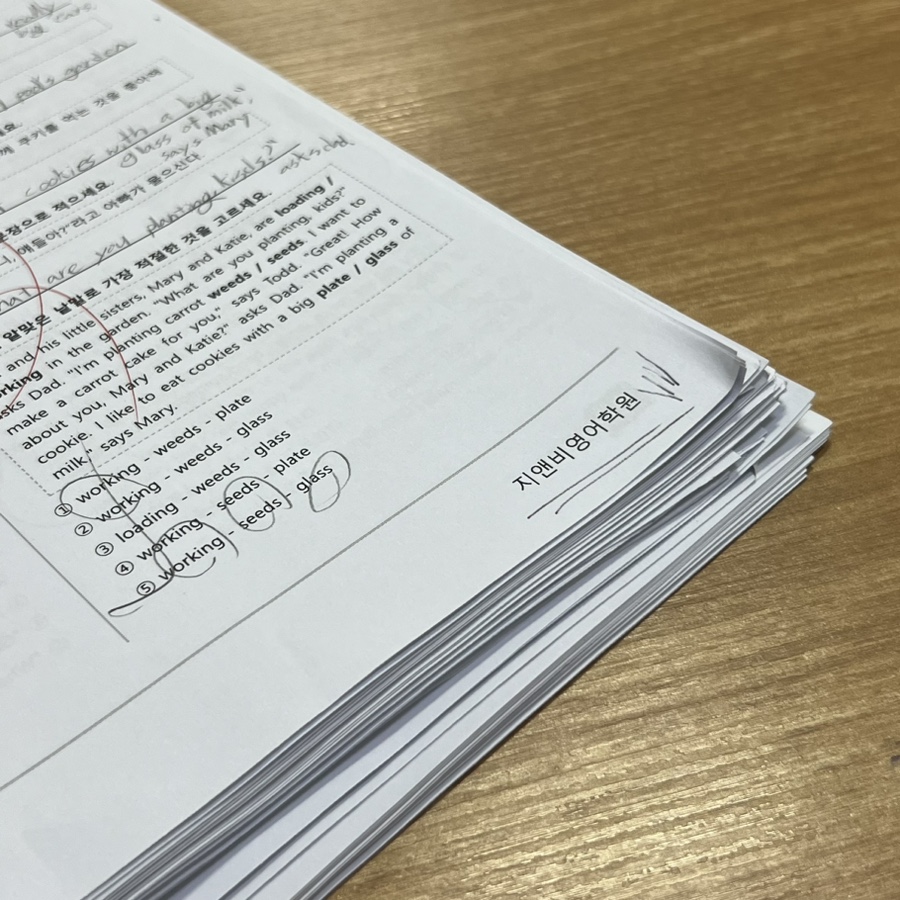 garden
개 쿠키를 먹는 것을 좋아해
cookies with a big
glass of milk,"
says Mary
문장으로 적으세요.
애들아?"라고 아빠가 물으신다.
are you planting kids?" asks dad.
알맞은 낱말로 가장 적절한 것을 고르세요.
and his little sisters, Mary and Katie, are loading /
working in the garden. "What are you planting, kids?"
asks Dad. "I'm planting carrot weeds / seeds. I want to
make a carrot cake for you," says Todd. "Great! How
about you, Mary and Katie?" asks Dad. "I'm planting a
cookie. I like to eat cookies with a big plate / glass of
milk," says Mary.
① working - weeds - plate
② working - weeds - glass
③ loading - weeds - glass
④ working - seeds - plate
⑤ working - seeds - glass
지앤비영어학원